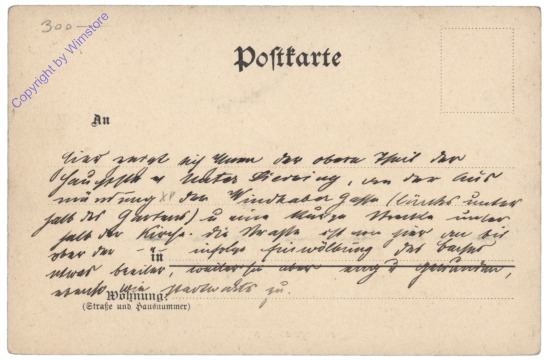 300—
Copyright by Wimstore
Postkarte
An
Hier zeigt sich Ihnen der obere Theil der
Hauptstr. v Unter Sievering, von der Aus
mündung XV der Windhaber Gasse (links unter
halb des Gartens) u eine kurze Strecke unter
halb der Kirche. die Straße ist von hier an bis
ober der infolge Einwölbung des Baches
in
etwas breiter, weiterhin aber eng u gewunden,
ebenso wie zu.
Wohnung:
(Straße und Hausnummer)